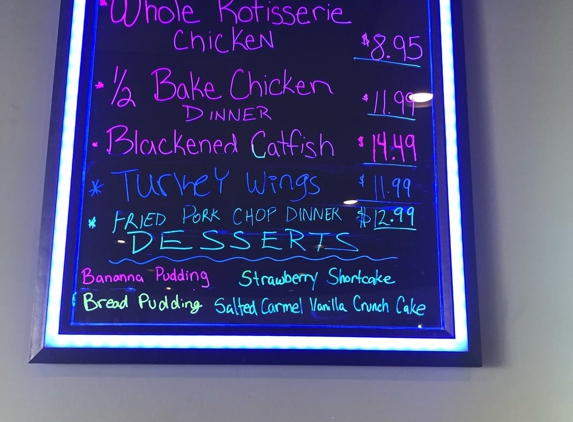 * Whole Rotisserie
Chicken $8.95
* 1/2 Bake Chicken
DINNER $11.99
* Blackened Catfish $14.49
* Turkey Wings $11.99
* FRIED PORK CHOP DINNER $12.99
DESSERTS
Bananna Pudding Strawberry Shortcake
Bread Pudding Salted Carmel Vanilla Crunch Cake